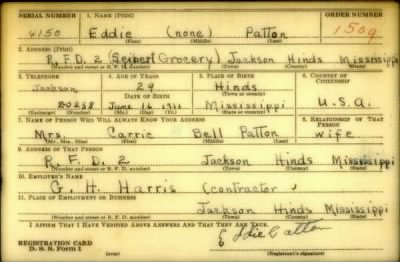 SERIAL NUMBER 1. NAME (Print) ORDER NUMBER
4150 Eddie (none) Patton 1509
(First) (Middle) (Last)
2. ADDRESS (Print)
R.F.D. 2 (Seibert Grocery) Jackson Hinds Mississippi
(Number and street or R. F. D. number) (Town) (County) (State)
3. TELEPHONE 4. AGE IN YEARS 5. PLACE OF BIRTH 6. COUNTRY OF CITIZENSHIP
Jackson 29 Hinds
(Town or county)
DATE OF BIRTH
20258 June 16 1911 Mississippi U.S.A.
(Exchange) (Number) (Mo.) (Day) (Yr.) (State or country)
7. NAME OF PERSON WHO WILL ALWAYS KNOW YOUR ADDRESS 8. RELATIONSHIP OF THAT PERSON
Mrs. Carrie Bell Patton wife
(Mr., Mrs., Miss) (First) (Middle) (Last)
9. ADDRESS OF THAT PERSON
R.F.D. 2 Jackson Hinds Mississippi
(Number and street or R. F. D. number) (Town) (County) (State)
10. EMPLOYER'S NAME
G. H. Harris (contractor
11. PLACE OF EMPLOYMENT OR BUSINESS
Jackson Hinds Mississippi
(Number and street or R. F. D. number) (Town) (County) (State)
I AFFIRM THAT I HAVE VERIFIED ABOVE ANSWERS AND THAT THEY ARE TRUE.
REGISTRATION CARD
D. S. S. Form 1
(Registrant's signature)